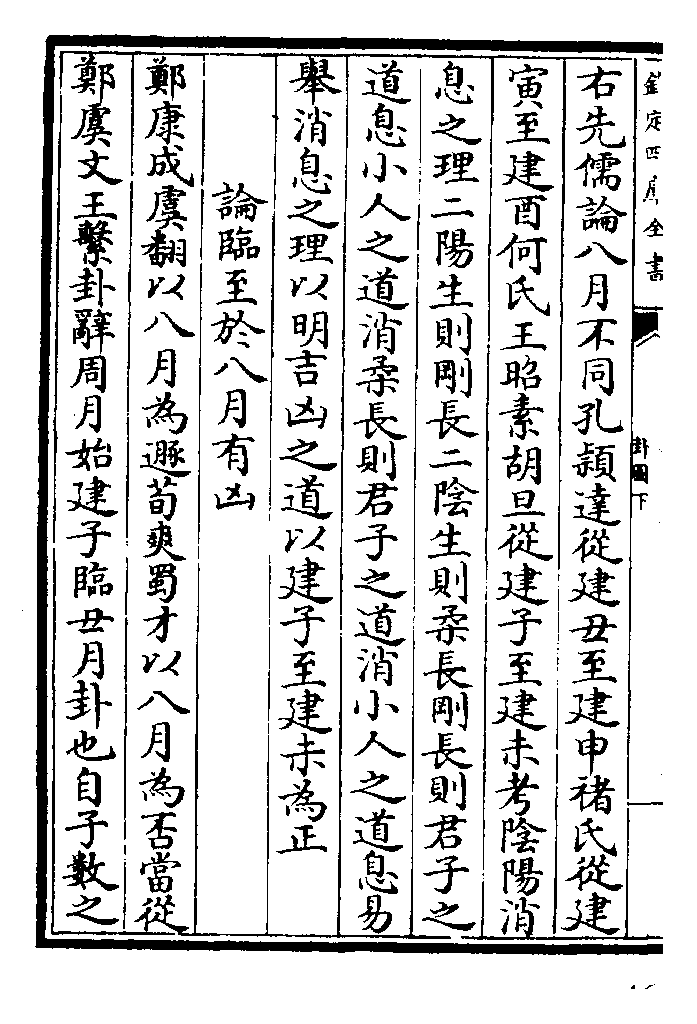 欽定四庫全書
卦圖下
右先儒論八月不同孔頴達從建丑至建申禇氏從建
寅至建酉何氏王昭素胡旦從建子至建未考陰陽消
息之理二陽生則剛長二陰生則柔長剛長則君子之
道息小人之道消柔長則君子之道消小人之道息易
舉消息之理以明吉凶之道以建子至建未為正
論臨至於八月有凶
鄭康成虞翻以八月為遯荀爽蜀才以八月為否當從
鄭虞文王繫卦辭周月始建子臨丑月卦也自子數之